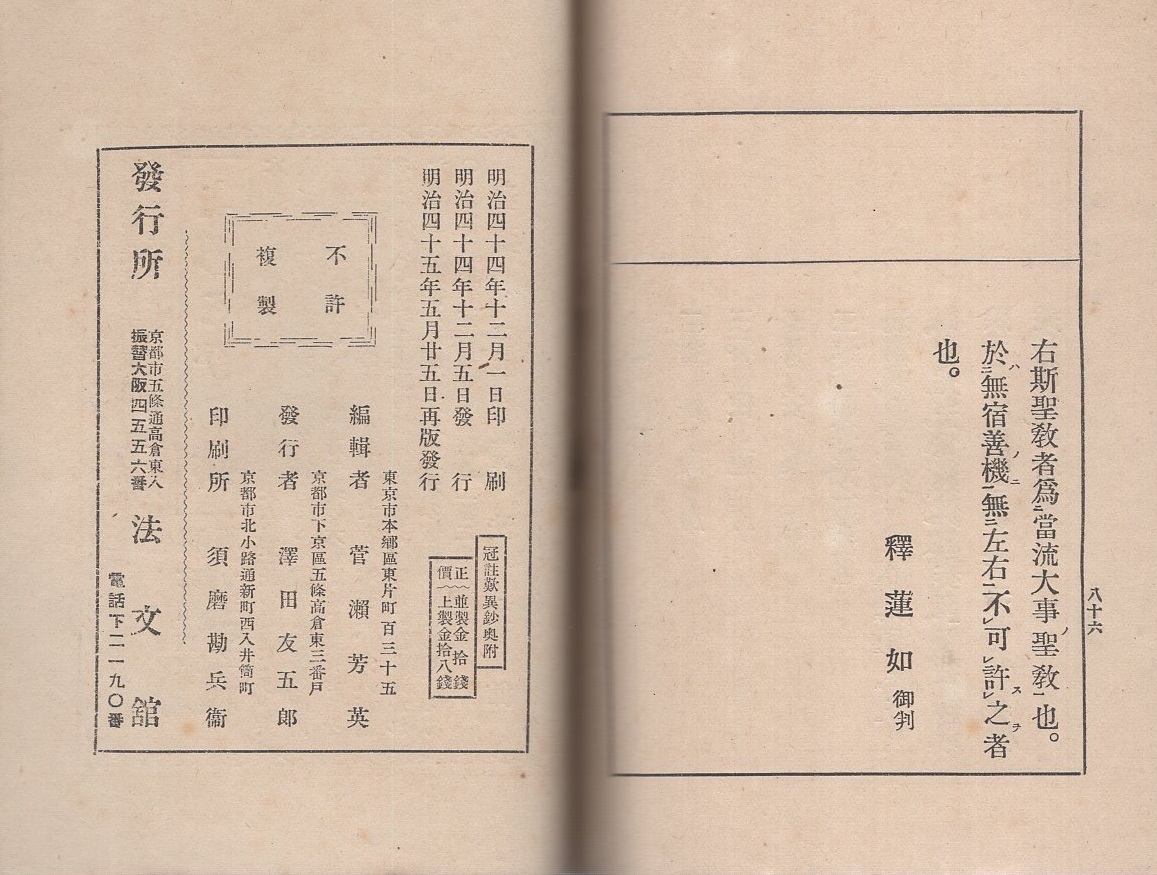 八十六
右斯聖敎者爲當流大事聖敎也。
於無宿善機無左右不可許之者
也。
釋蓮如御判
明治四十四年十二月一日印刷
明治四十四年十二月五日發行
明治四十五年五月廿五日再版發行
冠註歎異鈔奧附
正價
並製金拾錢
上製金拾八錢
東京市本鄕區東片町百三十五
編輯者 菅瀨芳英
京都市下京區五條高倉東三番戶
發行者 澤田友五郎
京都市北小路通新町西入井筒町
印刷所 須磨勘兵衞
不許
複製
發行所
京都市五條通高倉東入
振替大阪四五五六番
法文館
電話下二一九〇番